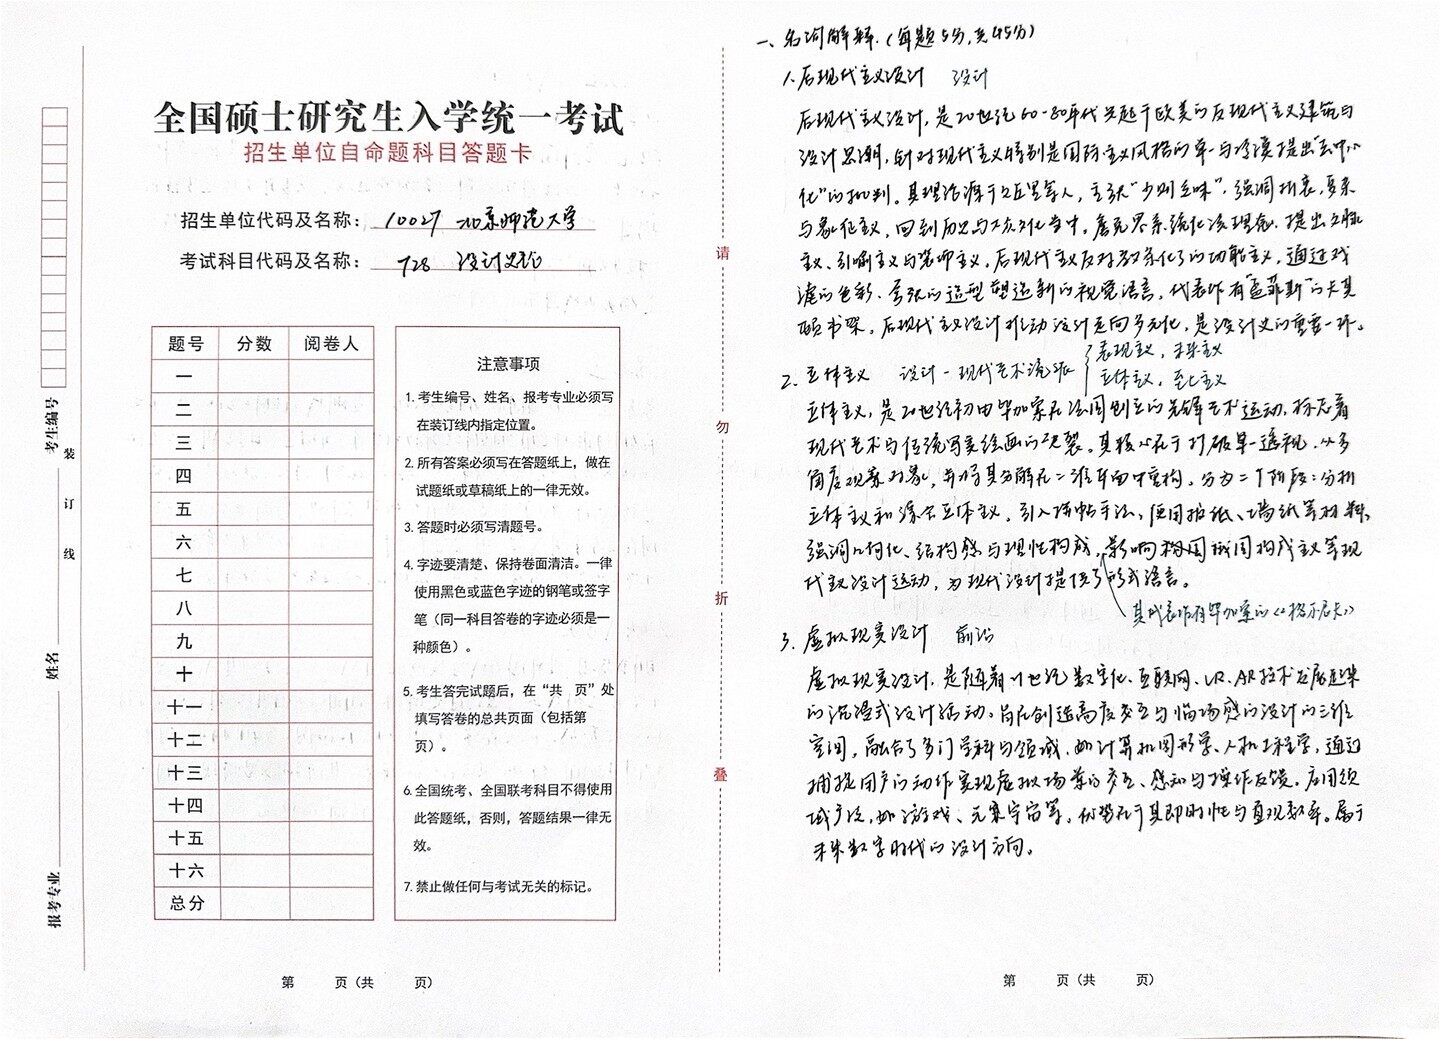 全国硕士研究生入学统一考试
招生单位自命题科目答题卡
招生单位代码及名称： 10027 北京师范大学
考试科目代码及名称： 728 设计史论
题号 分数 阅卷人
一
二
三
四
五
六
七
八
九
十
十一
十二
十三
十四
十五
十六
总分
注意事项
1. 考生编号、姓名、报考专业必须写
在装订线内指定位置。
2. 所有答案必须写在答题纸上，做在
试题纸或草稿纸上的一律无效。
3. 答题时必须写清题号。
4. 字迹要清楚、保持卷面清洁。一律
使用黑色或蓝色字迹的钢笔或签字
笔（同一科目答卷的字迹必须是一
种颜色）。
5. 考生答完试题后，在“共 页”处
填写答卷的总共页面（包括第
页）。
6. 全国统考、全国联考科目不得使用
此答题纸，否则，答题结果一律无
效。
7. 禁止做任何与考试无关的标记。
考生编号
姓名
报考专业
装
订
线
第 页（共 页）
请
勿
折
叠
一、名词解释.（每题5分，共45分）
1. 后现代主义设计 设计
后现代主义设计，是20世纪60-80年代兴起于欧美的反现代主义建筑与
设计思潮，针对现代主义特别是国际主义风格的单一与冷漠提出“去中心
化”的批判。其理论源于文丘里等人，主张“少则乏味”，强调折衷，复杂
与象征主义，回到历史与大众文化当中。詹克思系统化该理念，提出文脉
主义、引喻主义与装饰主义。后现代主义反对教条化了的功能主义，通过戏
谑的色彩、夸张的造型塑造新的视觉语言，代表作有“孟菲斯”的卡其
顿书架。后现代主义设计推动设计走向多元化，是设计史的重要一环。
2. 立体主义 设计-现代艺术流派 表现主义，未来主义
立体主义，至上主义
立体主义，是20世纪初由毕加索在法国创立的先锋艺术运动，标志着
现代艺术与传统写实绘画的决裂。其核心在于打破单一透视，从多
角度观察对象，并将其分解在二维平面中重构。分为二个阶段：分析
立体主义和综合立体主义。引入拼帖手法，使用报纸、墙纸等材料，
强调几何化、结构感与理性构成，影响构国俄国构成主义等现
代主义设计运动，为现代设计提供了形式语言。
其代表作有毕加索的《格尔尼卡》
3. 虚拟现实设计 前沿
虚拟现实设计，是随着21世纪数字化、互联网、VR、AR技术发展起来
的沉浸式设计活动。旨在创造高度交互与临场感的设计的三维
空间，融合了多门学科与领域，如计算机图形学、人机工程学，通过
捕捉用户的动作实现虚拟场景的交互、感知与操作反馈。应用领
域广泛，如游戏、元宇宙等，优势在于其即时性与直观效率。属于
未来数字时代的设计方向。
第 页（共 页）